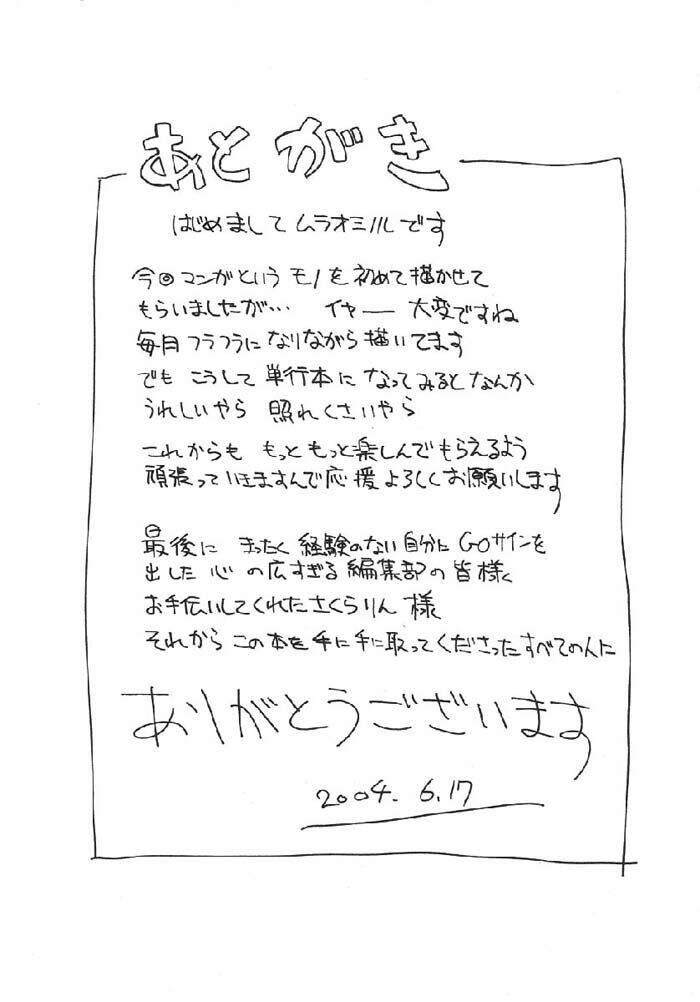 あとがき
はじめまして ムラオミノルです
今回マンガという モノを初めて描かせて
もらいましたが… イャー 大変ですね
毎月フラフラになりながら描いてます
でも こうして 単行本に なってみるとなんか
うれしいやら 照れくさいやら
これからも もっと もっと楽しんでもらえるよう
頑張っていきますんで応援よろしくお願いします
最後に まったく 経験のない自分に GOサインを
出した 心 の広すぎる編集部の皆様
お手伝いしてくれたさくらりん 様
それから この本を手に手に取ってくださったすべての人に
ありがとうございます
2004. 6.17